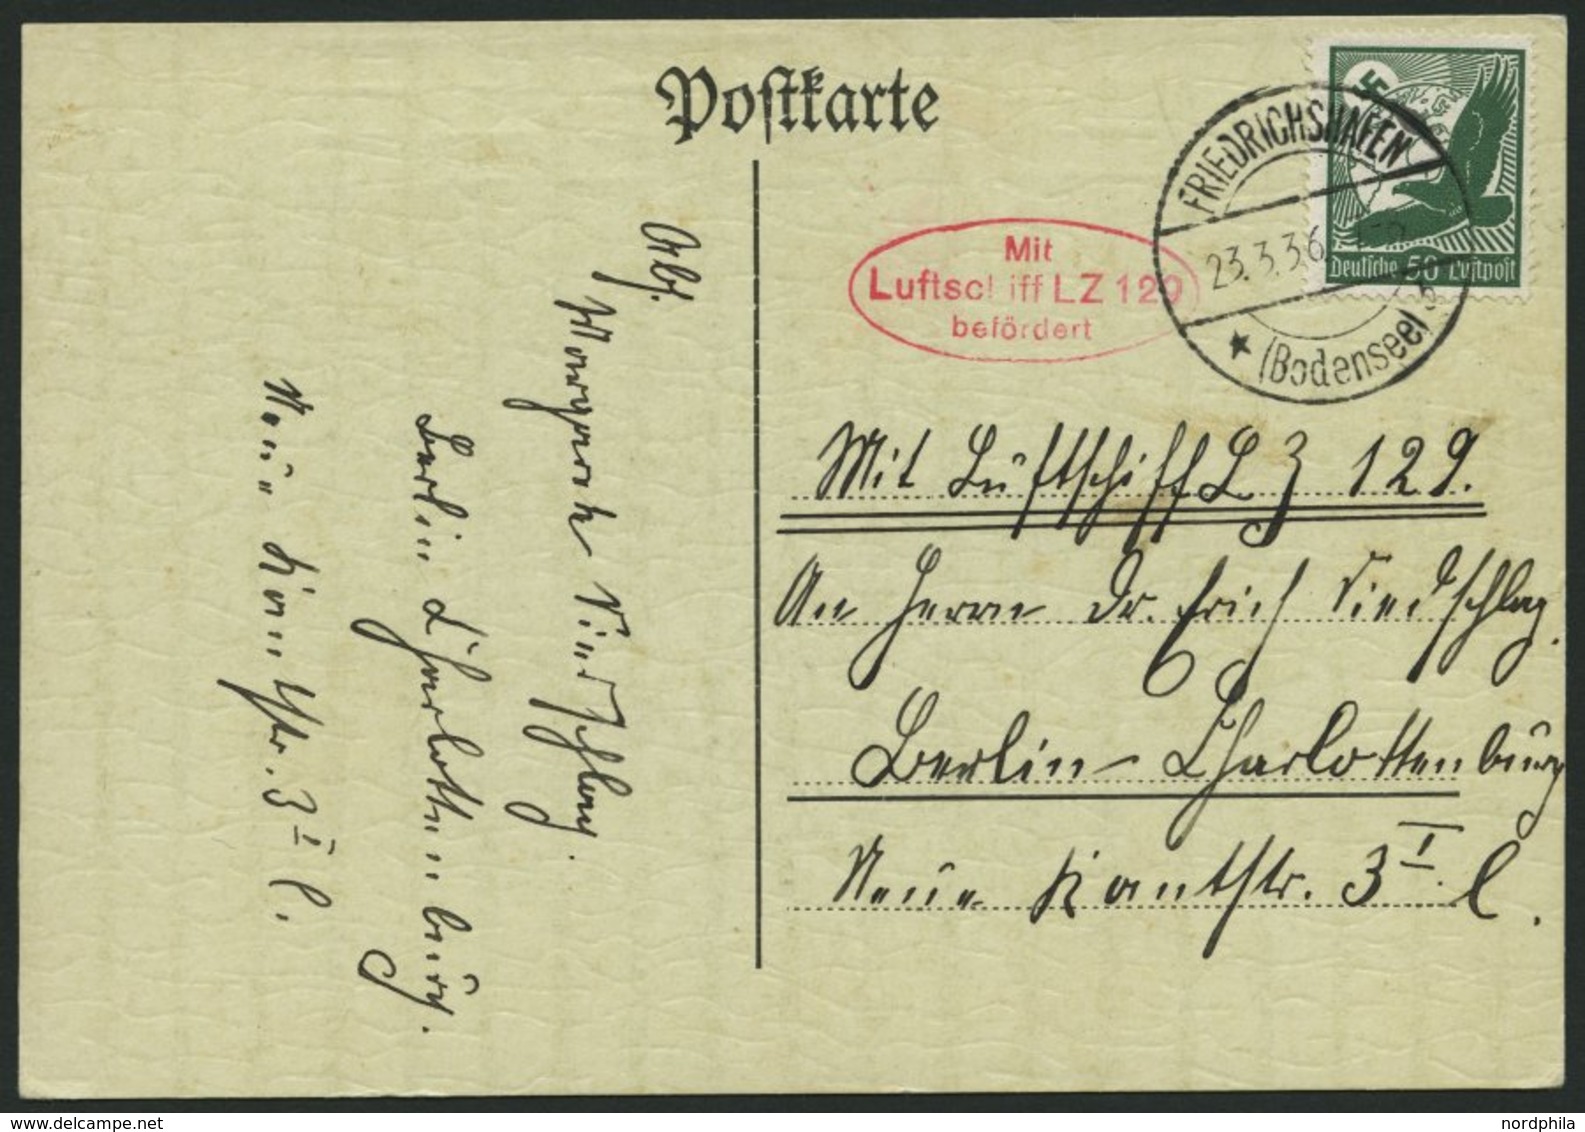 Postkarte
FRIEDRICHSHAFEN
23.3.36
(Bodensee)
Deutsche 50 Luftpost
Mit
Luftschiff LZ 129
befördert
Mit Luftschiff L Z 129.
An Herrn Dr. Erich Niedschlag.
Berlin-Charlottenburg
Neue Kantstr. 3 I l.
Abs.
Margarete Niedschlag.
Berlin Charlottenburg.
Neue Kantstr. 3 I l.
nordphila